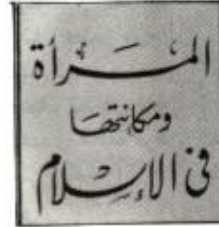 المرأة
ومكانتها
فى الإسلام